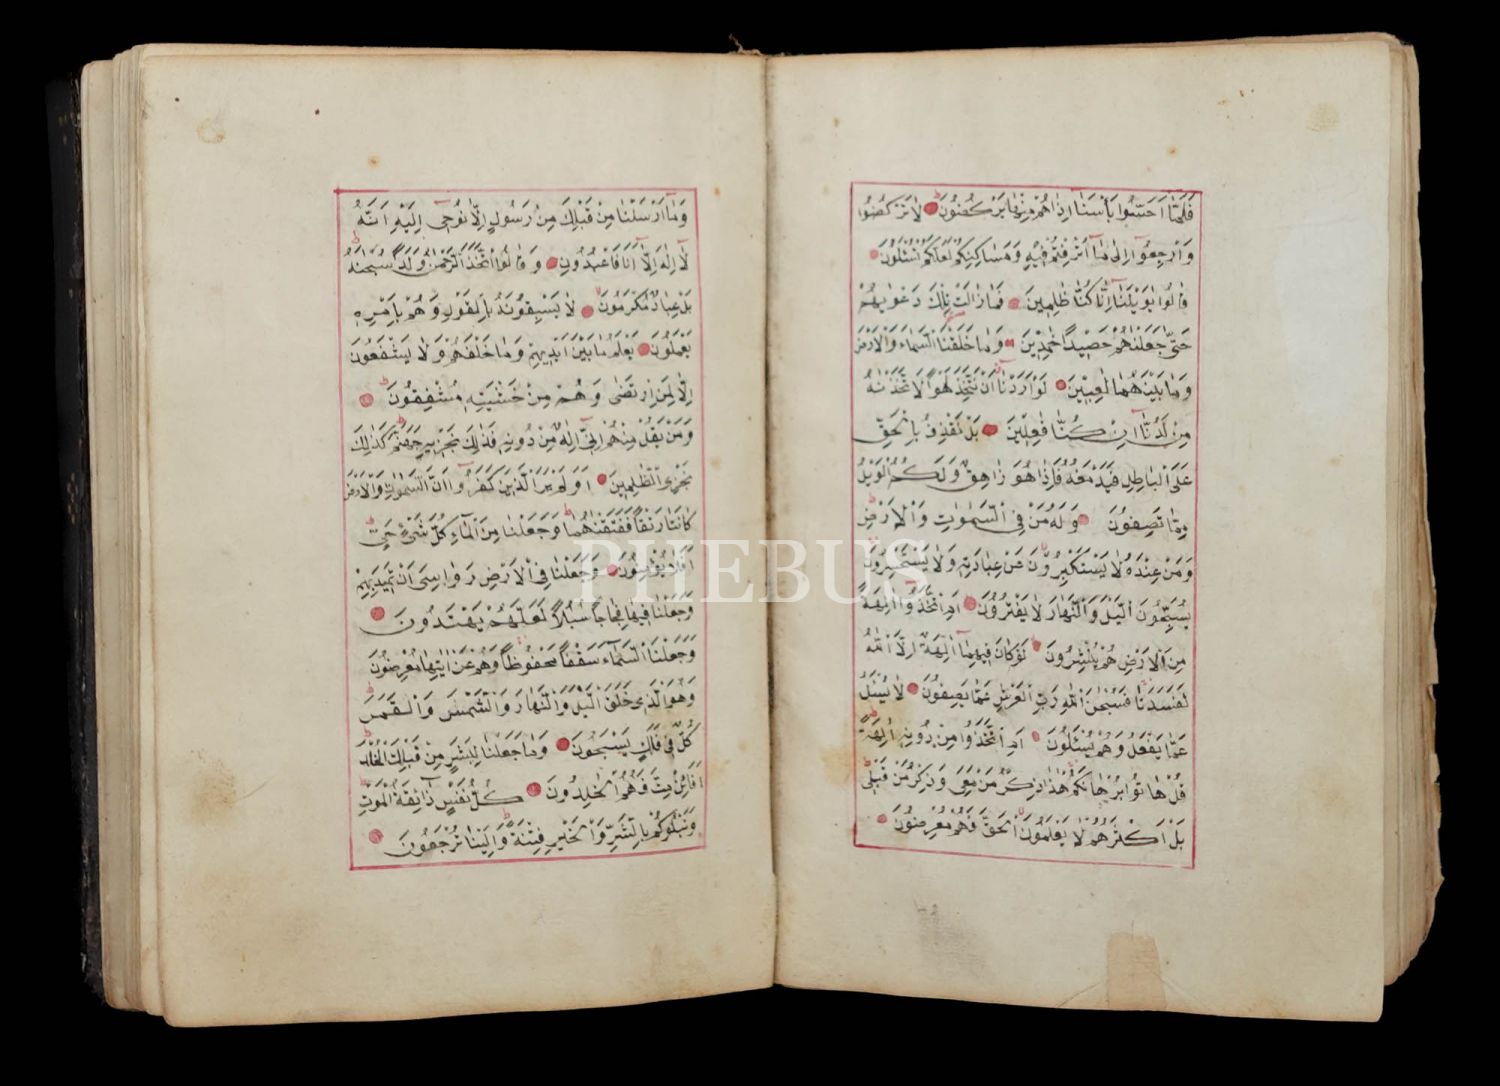 فَلَمَّا اَحَسُّوا بَأْسَنَا اِذَا هُمْ مِنْهَا يَرْكُضُونَ لَا تَرْكُضُوا
وَارْجِعُوا اِلٰى مَا اُتْرِفْتُمْ فِيهِ وَمَسَاكِنِكُمْ لَعَلَّكُمْ تُسْئَلُونَ
قَالُوا يَا وَيْلَنَا اِنَّا كُنَّا ظَالِمِينَ فَمَا زَالَتْ تِلْكَ دَعْوٰيهُمْ
حَتّٰى جَعَلْنَاهُمْ حَصِيدًا خَامِدِينَ وَمَا خَلَقْنَا السَّمَاءَ وَالْاَرْضَ
وَمَا بَيْنَهُمَا لَاعِبِينَ لَوْ اَرَدْنَا اَنْ نَتَّخِذَ لَهْوًا لَاتَّخَذْنَاهُ
مِنْ لَدُنَّا اِنْ كُنَّا فَاعِلِينَ بَلْ نَقْذِفُ بِالْحَقِّ
عَلَى الْبَاطِلِ فَيَدْمَغُهُ فَاِذَا هُوَ زَاهِقٌ وَلَكُمُ الْوَيْلُ
مِمَّا تَصِفُونَ وَلَهُ مَنْ فِي السَّمٰوَاتِ وَالْاَرْضِ
وَمَنْ عِنْدَهُ لَا يَسْتَكْبِرُونَ عَنْ عِبَادَتِهِ وَلَا يَسْتَحْسِرُونَ
يُسَبِّحُونَ الَّيْلَ وَالنَّهَارَ لَا يَفْتُرُونَ اَمِ اتَّخَذُوا اٰلِهَةً
مِنَ الْاَرْضِ هُمْ يُنْشِرُونَ لَوْ كَانَ فِيهِمَا اٰلِهَةٌ اِلَّا اللّٰهُ
لَفَسَدَتَا فَسُبْحَانَ اللّٰهِ رَبِّ الْعَرْشِ عَمَّا يَصِفُونَ لَا يُسْئَلُ
عَمَّا يَفْعَلُ وَهُمْ يُسْئَلُونَ اَمِ اتَّخَذُوا مِنْ دُونِهِ اٰلِهَةً
قُلْ هَاتُوا بُرْهَانَكُمْ هٰذَا ذِكْرُ مَنْ مَعِيَ وَذِكْرُ مَنْ قَبْلِي
بَلْ اَكْثَرُهُمْ لَا يَعْلَمُونَ الْحَقَّ فَهُمْ مُعْرِضُونَ
وَمَا اَرْسَلْنَا مِنْ قَبْلِكَ مِنْ رَسُولٍ اِلَّا نُوحِي اِلَيْهِ اَنَّهُ
لَا اِلٰهَ اِلَّا اَنَا فَاعْبُدُونِ وَقَالُوا اتَّخَذَ الرَّحْمٰنُ وَلَدًا سُبْحَانَهُ
بَلْ عِبَادٌ مُكْرَمُونَ لَا يَسْبِقُونَهُ بِالْقَوْلِ وَهُمْ بِاَمْرِهِ
يَعْمَلُونَ يَعْلَمُ مَا بَيْنَ اَيْدِيهِمْ وَمَا خَلْفَهُمْ وَلَا يَشْفَعُونَ
اِلَّا لِمَنِ ارْتَضٰى وَهُمْ مِنْ خَشْيَتِهِ مُشْفِقُونَ
وَمَنْ يَقُلْ مِنْهُمْ اِنِّي اِلٰهٌ مِنْ دُونِهِ فَذٰلِكَ نَجْزِيهِ جَهَنَّمَ كَذٰلِكَ
نَجْزِي الظَّالِمِينَ اَوَلَمْ يَرَ الَّذِينَ كَفَرُوا اَنَّ السَّمٰوَاتِ وَالْاَرْضَ
كَانَتَا رَتْقًا فَفَتَقْنَاهُمَا وَجَعَلْنَا مِنَ الْمَاءِ كُلَّ شَيْءٍ حَيٍّ
اَفَلَا يُؤْمِنُونَ وَجَعَلْنَا فِي الْاَرْضِ رَوَاسِيَ اَنْ تَمِيدَ بِهِمْ
وَجَعَلْنَا فِيهَا فِجَاجًا سُبُلًا لَعَلَّهُمْ يَهْتَدُونَ
وَجَعَلْنَا السَّمَاءَ سَقْفًا مَحْفُوظًا وَهُمْ عَنْ اٰيَاتِهَا مُعْرِضُونَ
وَهُوَ الَّذِي خَلَقَ الَّيْلَ وَالنَّهَارَ وَالشَّمْسَ وَالْقَمَرَ
كُلٌّ فِي فَلَكٍ يَسْبَحُونَ وَمَا جَعَلْنَا لِبَشَرٍ مِنْ قَبْلِكَ الْخُلْدَ
اَفَاِئِنْ مِتَّ فَهُمُ الْخَالِدُونَ كُلُّ نَفْسٍ ذَائِقَةُ الْمَوْتِ
وَنَبْلُوكُمْ بِالشَّرِّ وَالْخَيْرِ فِتْنَةً وَاِلَيْنَا تُرْجَعُونَ
PHEBUS